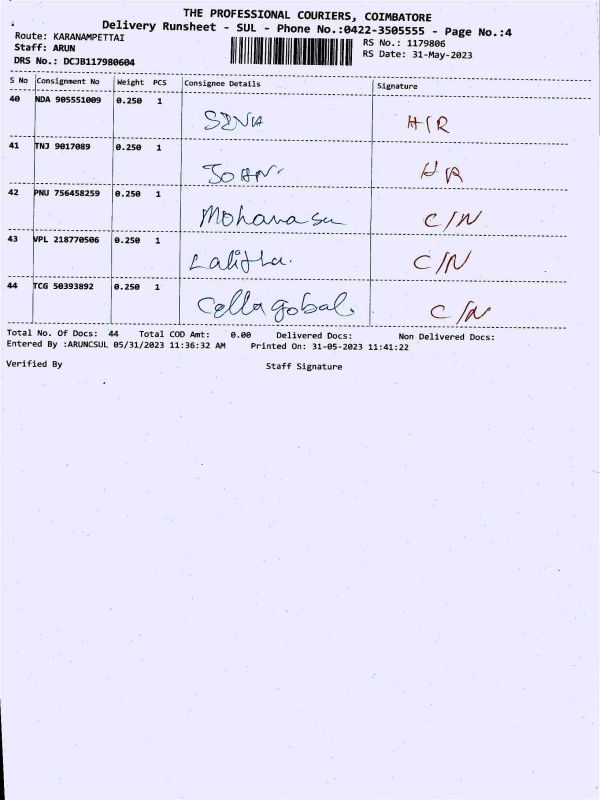 THE PROFESSIONAL COURIERS, COIMBATORE
Delivery Runsheet - SUL - Phone No.:0422-3505555 - Page No.:4
Route: KARANAMPETTAI
Staff: ARUN
DRS No.: DCJB117980604
RS No.: 1179806
RS Date: 31-May-2023
S No Consignment No Weight PCS Consignee Details Signature
40 NDA 905551009 0.250 1 H/R
41 TNJ 9017089 0.250 1 JOHN HR
42 PNU 756458259 0.250 1 Mohana su C/N
43 VPL 218770506 0.250 1 Lalitha. C/N
44 TCG 50393892 0.250 1 Cella gobal. C/N
Total No. Of Docs: 44 Total COD Amt: 0.00 Delivered Docs: Non Delivered Docs:
Entered By :ARUNCSUL 05/31/2023 11:36:32 AM Printed On: 31-05-2023 11:41:22
Verified By Staff Signature